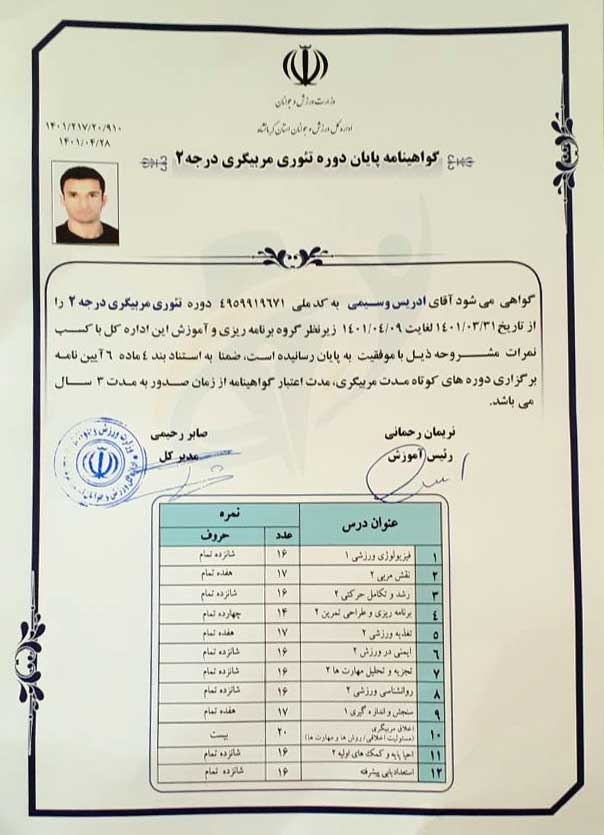 وزارت ورزش و جوانان
اداره کل ورزش و جوانان استان کرمانشاه
۱۴۰۱/۲۱۷/۲۰/۹۱۰
۱۴۰۱/۰۴/۲۸
گواهینامه پایان دوره تئوری مربیگری درجه ۲
گواهی می شود آقای ادریس وسیمی به کد ملی ۴۹۵۹۹۱۹۶۷۱ دوره تئوری مربیگری درجه ۲ را
از تاریخ ۱۴۰۱/۰۳/۳۱ لغایت ۱۴۰۱/۰۴/۰۹ زیر نظر گروه برنامه ریزی و آموزش این اداره کل با کسب
نمرات مشروحه ذیل با موفقیت به پایان رسانیده است، ضمنا به استناد بند ۴ ماده ۶ آیین نامه
برگزاری دوره های کوتاه مدت مربیگری، مدت اعتبار گواهینامه از زمان صدور به مدت ۳ سال
می باشد.
نریمان رحمانی
رئیس آموزش
صابر رحیمی
مدیر کل
عنوان درس نمره
عدد حروف
۱ فیزیولوژی ورزشی ۱ ۱۶ شانزده تمام
۲ نقش مربی ۲ ۱۷ هفده تمام
۳ رشد و تکامل حرکتی ۲ ۱۶ شانزده تمام
۴ برنامه ریزی و طراحی تمرین ۲ ۱۴ چهارده تمام
۵ تغذیه ورزشی ۲ ۱۷ هفده تمام
۶ ایمنی در ورزش ۲ ۱۶ شانزده تمام
۷ تجزیه و تحلیل مهارت ها ۲ ۱۶ شانزده تمام
۸ روانشناسی ورزشی ۲ ۱۶ شانزده تمام
۹ سنجش و اندازه گیری ۱ ۱۷ هفده تمام
۱۰ اخلاق مربیگری (مسئولیت اخلاقی/ روش ها و مهارت ها) ۲۰ بیست
۱۱ احیا پایه و کمک های اولیه ۲ ۱۶ شانزده تمام
۱۲ استعدادیابی پیشرفته ۱۶ شانزده تمام